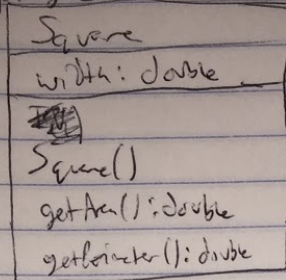 Square
width: double
Square()
getArea(): double
getPerimeter(): double